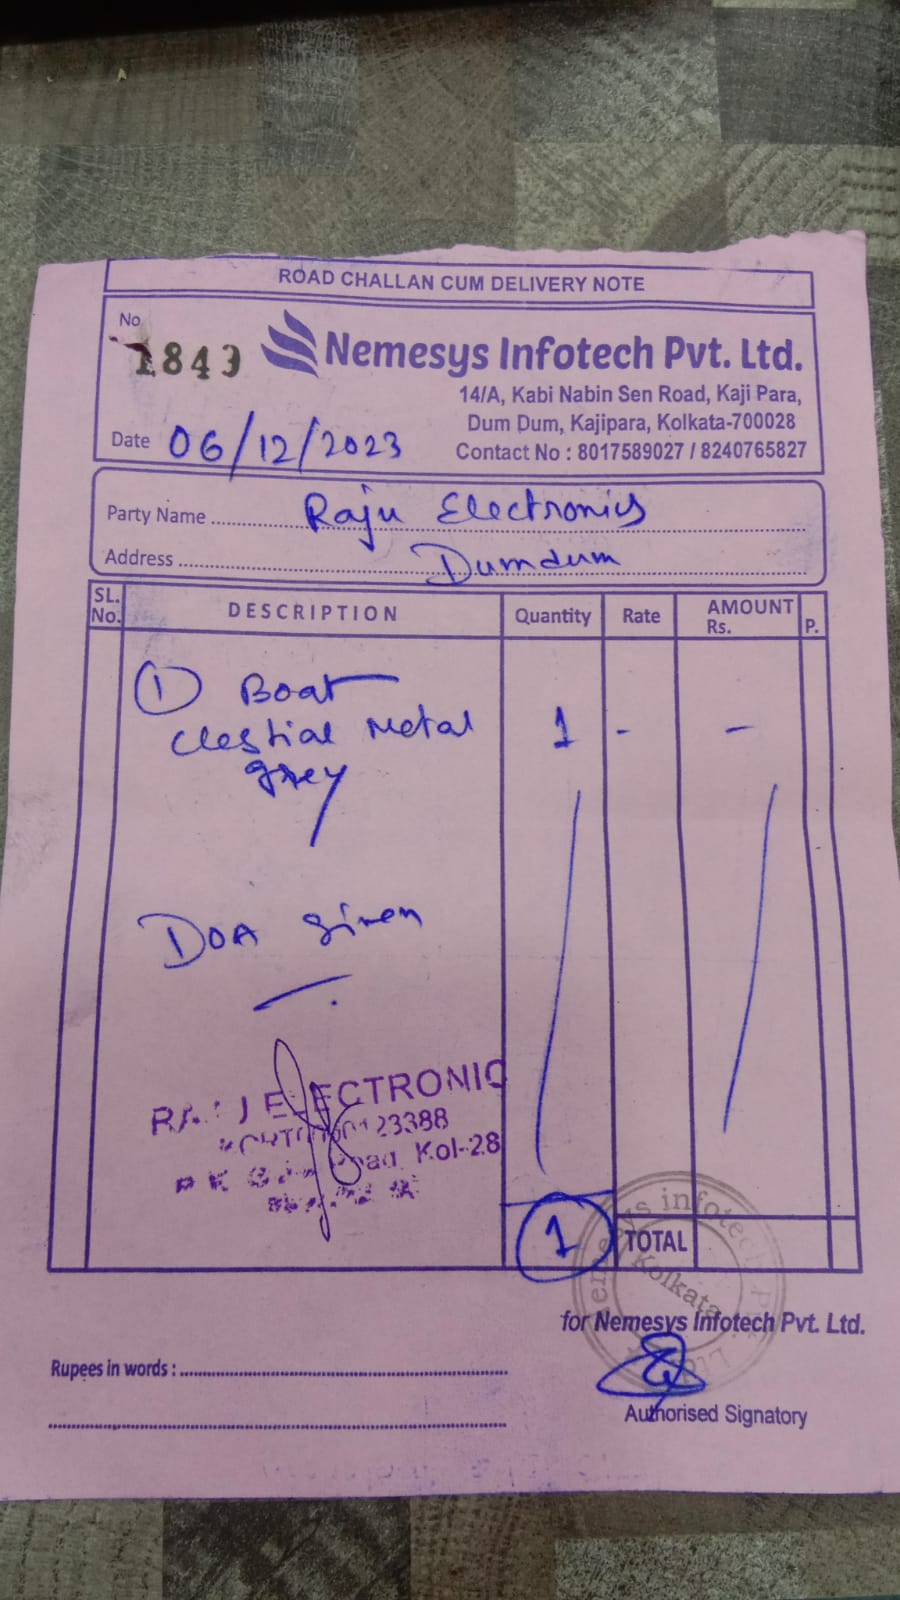 ROAD CHALLAN CUM DELIVERY NOTE
No.
1849
Nemesys Infotech Pvt. Ltd.
14/A, Kabi Nabin Sen Road, Kaji Para,
Dum Dum, Kajipara, Kolkata-700028
Contact No : 8017589027 / 8240765827
Date 06/12/2023
Party Name Raju Electronics
Address Dumdum
SL. No. DESCRIPTION Quantity Rate AMOUNT Rs. P.
1 Boat
Clestial Metal 1 - -
grey
DOA given
ELECTRONIC
23388
Road, Kol-28
1 TOTAL
Nemesys infotech Pvt. Ltd.
Kolkata
for Nemesys Infotech Pvt. Ltd.
Rupees in words :
Authorised Signatory